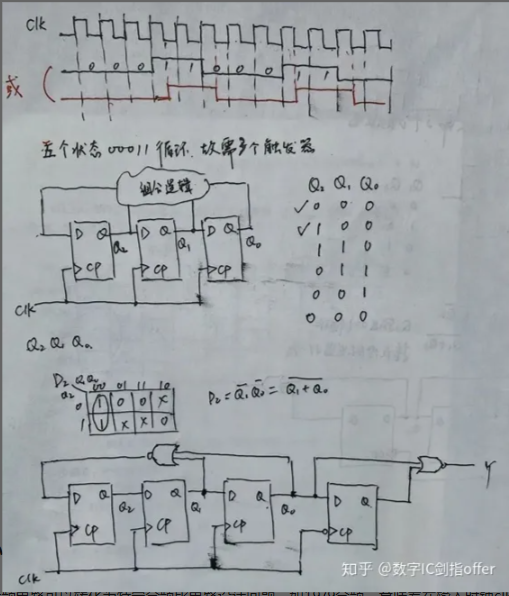 clk
0 0 0 1 1 0 0 0 1 1
或
五个状态00011循环.故需3个触发器
组合逻辑
D Q Q₂ D Q Q₁ D Q Q₀
CP CP CP
clk
Q₂ Q₁ Q₀
✓ 0 0 0
✓ 1 0 0
1 1 0
0 1 1
0 0 1
0 0 0
Q₂ Q₁ Q₀
D₂ Q₁Q₀
Q₂ 00 01 11 10
0 1 0 0 X
1 1 X X 0
D₂ = Q̅₁ Q̅₀ = \overline{Q₁+Q₀}
D Q Q₂ D Q Q₁ D Q Q₀ D Q
Y
CP CP CP CP
clk
知乎 @数字IC剑指offer